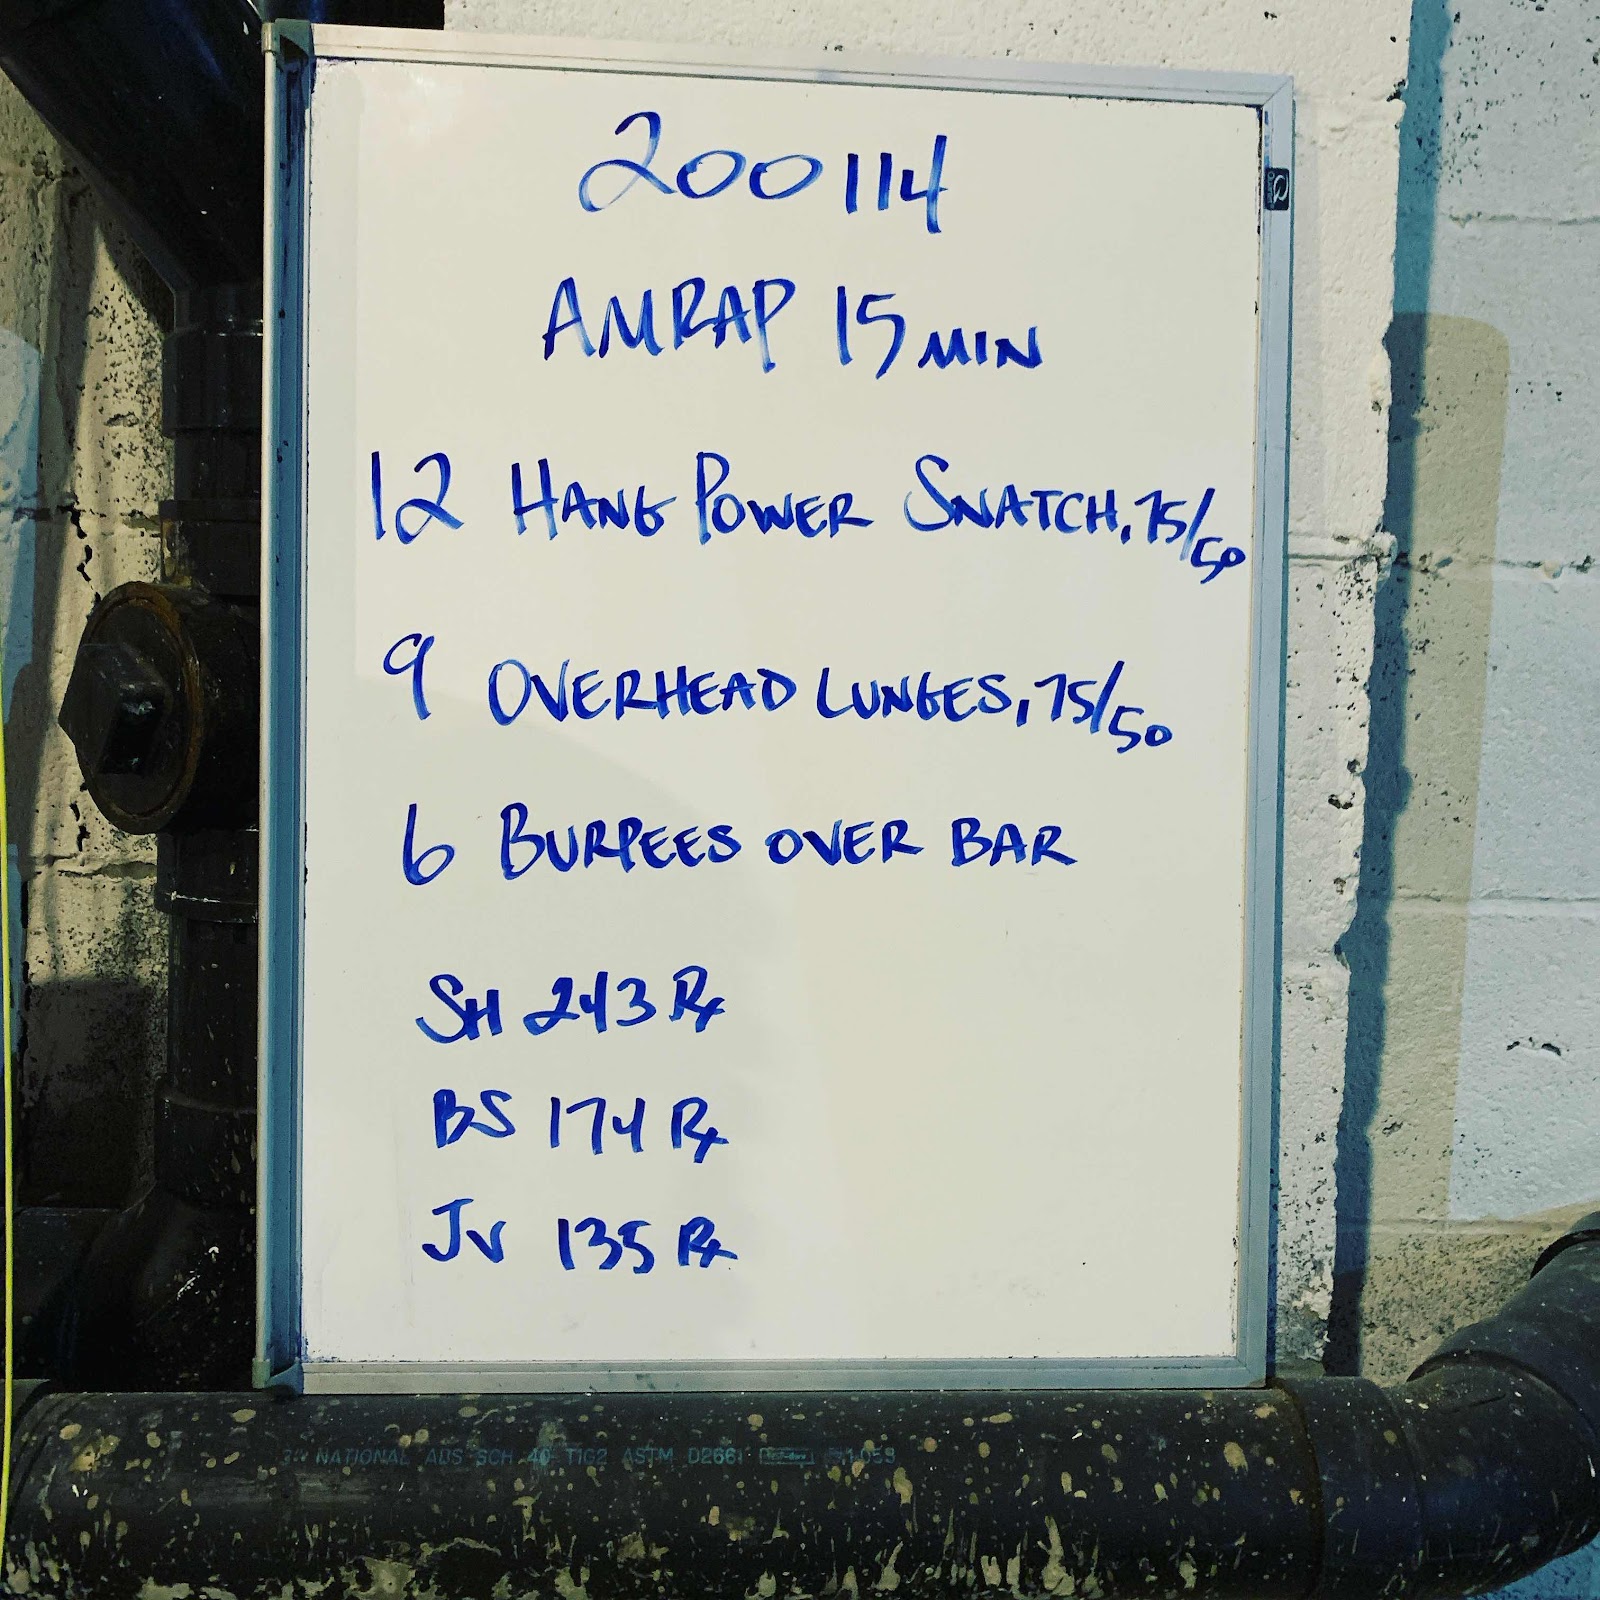 200114
AMRAP 15 MIN
12 HANG POWER SNATCH, 75/50
9 OVERHEAD LUNGES, 75/50
6 BURPEES OVER BAR
SH 243 Rx
BS 174 Rx
JV 135 Rx
NATIONAL ABS SCH 40 ASTM D2661